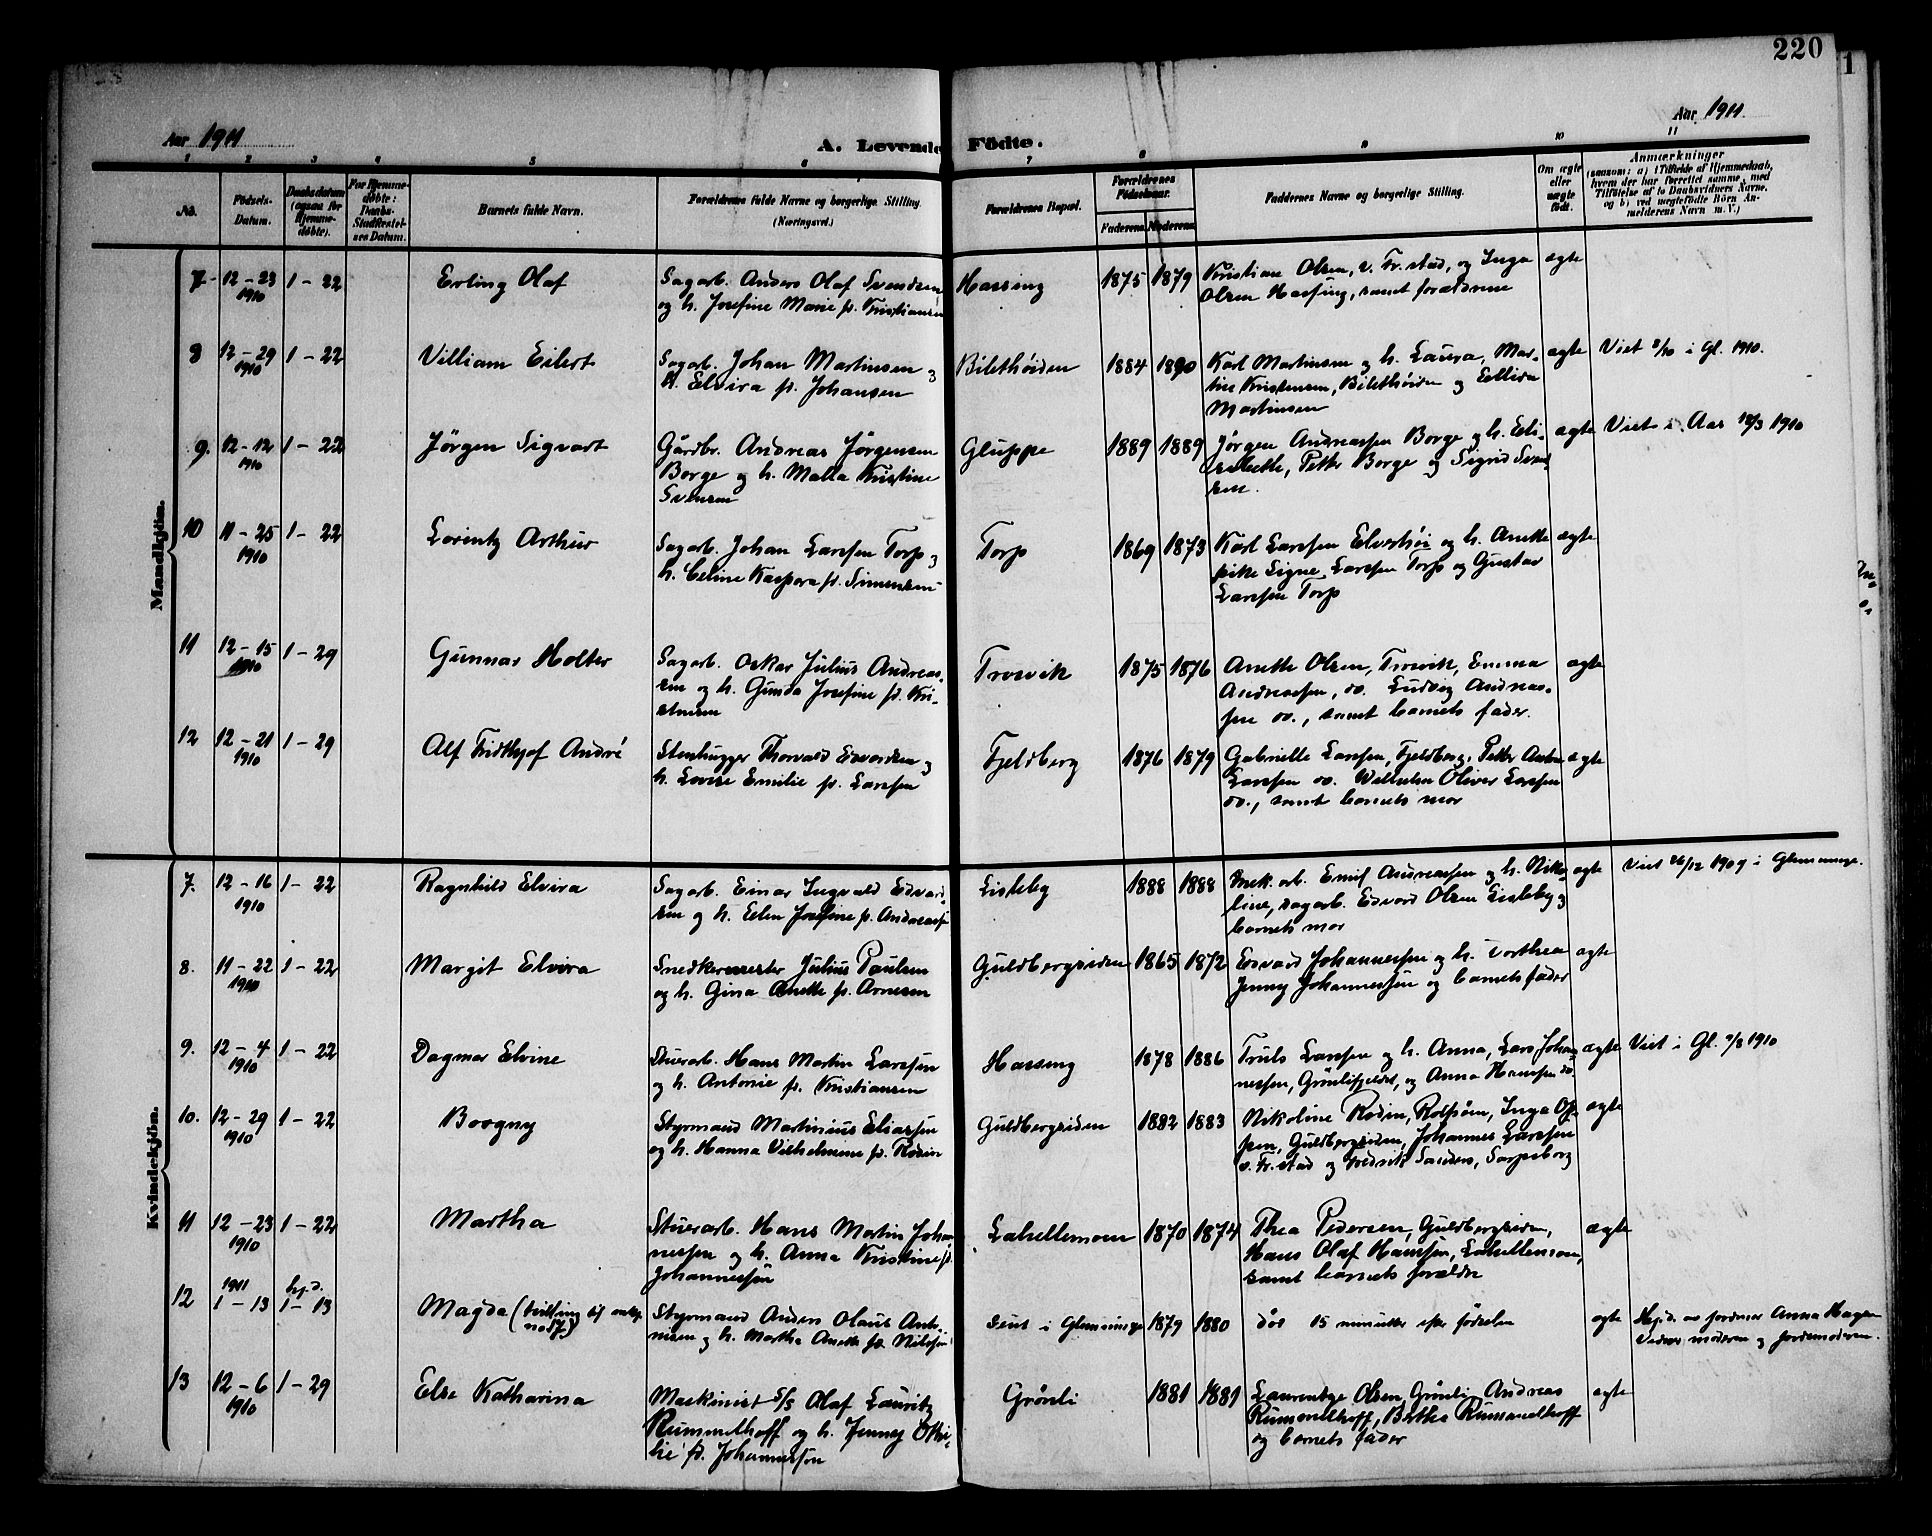 220
Aar 1911
A. Levende Födte.
Aar 1911
1 2 3 4 5 6 7 8 9 10 11
No.
Födsels-
Datum.
Daabsdatum
(ogsaa for
Hjemme-
döbte).
For Hjemme-
döbte:
Daabs-
Stadfæstel-
ses Datum.
Barnets fulde Navn.
Forældrenes fulde Navne og borgerlige Stilling.
(Næringsvei.)
Forældrenes Bopæl.
Forældrenes
Födselsaar.
Faderens
Moderens
Faddernes Navne og borgerlige Stilling.
Om ægte
eller
uægte
födt.
Anmærkninger
(saasom: a) i Tilfælde af Hjemmedaab,
hvem der har forrettet samme, med
Tilföielse af to Daabsvidners Navne,
og b) ved uegtefödte Börn An-
melderens Navn m. V.)
Mandkjön.
7. 12-23 1910 1-22 Erling Olaf
Sagarb. Anders Olaf Svendsen
og h. Josefine Marie f. Kristiansen
Hassing 1875 1879
Kristian Olsen, v. Fr.stad, og Inga
Olsen Hassing, samt forældrene
ægte
8 12-29 1910 1-22 William Eilert
Sagarb. Johan Martinsen og
h. Elvira f. Johansen
Bilethöiden 1884 1890
Karl Martinsen og h. Laura, Mar-
tine Kristensen, Bilethöiden og
Martinsen
ægte
Viet i Gl. 1910.
9. 12-12 1910 1-22 Jörgen Sigvart
Gårdbr. Andreas Jörgensen
Borge og h. Malla Kristine
Svensen
Gluppe 1889 1889
Jörgen Andreassen Borge og h. Eli-
sabeth, Petter Borge og Sigrid Sven-
sen.
ægte
Viet i Aas 19/3 1910
10 11-25 1910 1-22 Lorintz Arthur
Sagarb. Johan Larssen Torp og
h. Celine Kaspara f. Simensen
Torp 1869 1873
Karl Larssen Elvestöi og h. Anette
pike Signe Larssen Torp og Gustav
Larssen Torp
ægte
11 12-15 1910 1-29 Gunnar Holter
Sagarb. Oskar Julius Andreas-
sen og h. Gunda Josefine f. Kri-
stensen
Trosvik 1875 1876
Anette Olsen, Trosvik, Emma
Andreassen, do. Ludvig Andreas-
sen do., samt barnets fader.
ægte
12 12-21 1910 1-29 Alf Fridthjof André
Stenhugger Thorvald Edvardsen og
h. Lovise Emilie f. Larssen
Fjeldberg 1876 1879
Gabrielle Larssen, Fjeldberg, Petter Anton
Larssen do. Wilhelm Oliver Larssen
do., samt barnets mor
ægte
Kvindekjön.
7. 12-16 1910 1-22 Ragnhild Elvira
Sagarb. Einar Ingvald Edvard-
sen og h. Elen Josefine f. Andreassen
Lisleby 1888 1888
Mek. arb. Emil Andreassen og h. Niko-
line, sagarb. Edvard Olsen Lisleby og
barnets mor
ægte
Viet 26/12 1909 i Glemminge.
8. 11-22 1910 1-22 Margit Elvira
Snedkermester Julius Paulsen
og h. Gina Anette f. Arnesen
Guldbergsiden 1865 1872
Edvard Johannessen og h. Dorthea
Jenny Johannessen og barnets fader
ægte
9. 12-4 1910 1-22 Dagmar Elvine
Stuerarb. Hans Martin Larssen
og h. Antonie f. Kristiansen
Hassing 1878 1886
Truls Larssen og h. Anna, Lars Johan-
nessen, Grönlifjeldet, og Anna Hanssen do.
ægte
Viet i Gl. 1910
10. 12-29 1910 1-22 Borgny
Styrmand Martinius Eliassen
og h. Hanna Vilhelmine f. Rodin
Guldbergsiden 1882 1883
Nikoline Rodin, Rolfsöen, Inga
Guldbergsiden, Johannes Larssen
v. Fr.stad og Fredrik Sarpsborg
ægte
11 12-23 1910 1-22 Martha
Stuerarb. Hans Martin Johan-
nessen og h. Anna Kristine f.
Johannessen
Lahellemoen 1870 1874
Thea Pedersen, Guldbergsiden,
Hans Olaf Hanssen, Lahellemoen,
samt barnets forældre
ægte
12 1911 1-13 hj.d. 1-13 Magda (tvilling til
Styrmand Anders Olaus Ant-
nisen og h. Martha Anette f. Nilssen
sens i Glemminge 1879 1880
död 15 minutter efter födselen
ægte
Hj.d. av jordmor Anna Hagen
Vidner: moderen og jordemoderen.
13 12-6 1910 1-29 Else Katharina
Maskinist S/S Olaf Lauritz
Rummelhoff og h. Jenny Otti-
lie f. Johannesson
Grönli 1881 1881
Laurentze Olsen Grönli, Andreas
Rummelhoff, Bertha Rummelhoff
og barnets fader
ægte